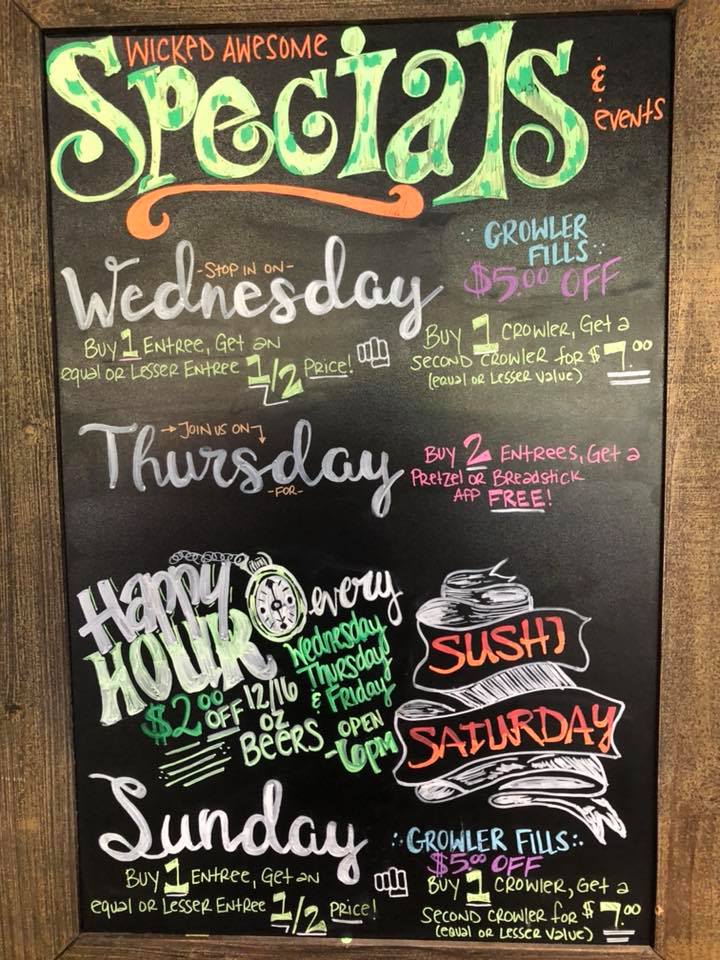 WICKED AWESOME
SPECIALS
& EVENTS
-STOP IN ON-
Wednesday
BUY 1 ENTREE, GET AN
EQUAL OR LESSER ENTREE 1/2 PRICE!
GROWLER
FILLS
$5.00 OFF
BUY 1 CROWLER, GET A
SECOND CROWLER FOR $7.00
(EQUAL OR LESSER VALUE)
JOIN US ON
Thursday
-FOR-
BUY 2 ENTREES, GET A
PRETZEL OR BREADSTICK
APP FREE!
Happy
HOUR
every
Wednesday
Thursday
& Friday
OPEN
-6PM
$2.00 OFF 12/16
OZ
BEERS
SUSHI
SATURDAY
Sunday
BUY 1 ENTREE, GET AN
EQUAL OR LESSER ENTREE 1/2 PRICE!
GROWLER FILLS
$5.00 OFF
BUY 1 CROWLER, GET A
SECOND CROWLER FOR $7.00
(EQUAL OR LESSER VALUE)